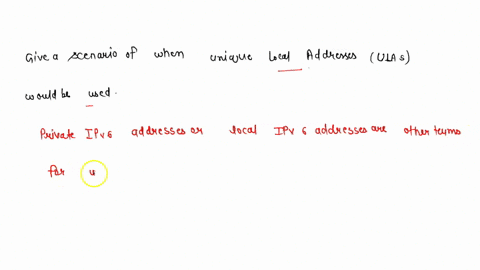 Give a scenario of when unique local Addresses (ULAs)
would be used.
Private IPv6 addresses or local IPV6 addresses are other terms
for u